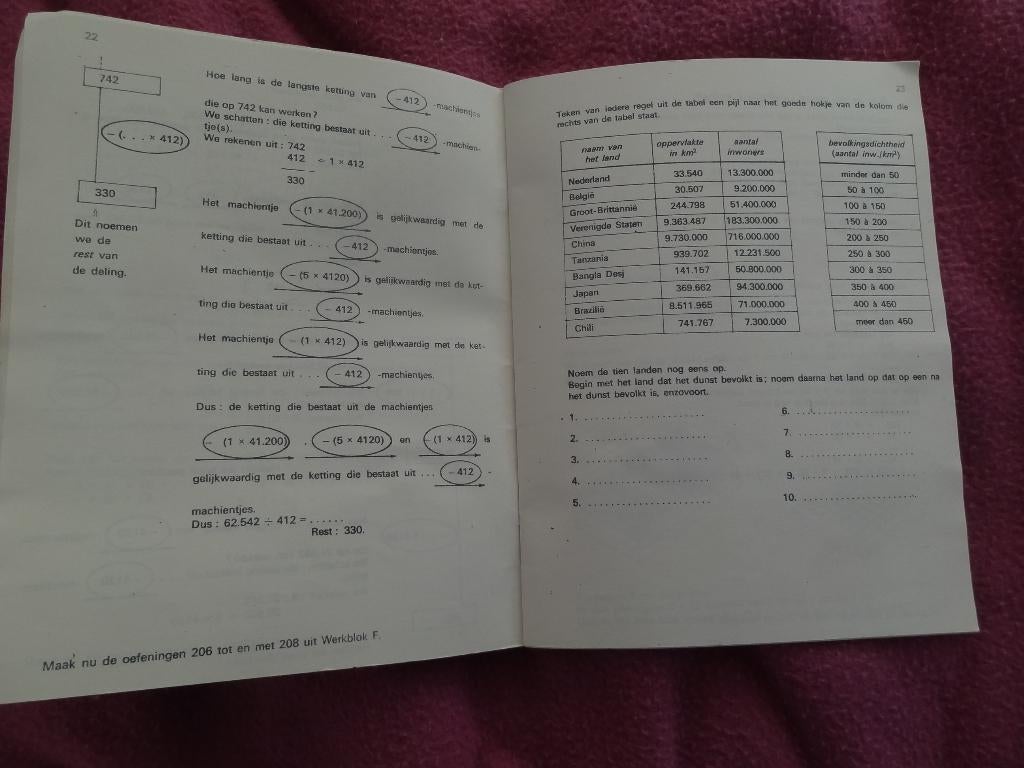 22
742
– (. . . × 412)
330
Dit noemen
we de
rest van
de deling.
Hoe lang is de langste ketting van – 412 -machientjes
die op 742 kan werken?
We schatten : die ketting bestaat uit . . . – 412 -machien-
tje(s).
We rekenen uit : 742
412 ÷ 1 × 412
–
330
Het machientje – (1 × 41.200) is gelijkwaardig met de
ketting die bestaat uit . . . . – 412 -machientjes.
Het machientje – (5 × 4120) is gelijkwaardig met de ket-
ting die bestaat uit . . . – 412 -machientjes.
Het machientje – (1 × 412) is gelijkwaardig met de ket-
ting die bestaat uit . . . – 412 -machientjes.
Dus : de ketting die bestaat uit de machientjes
– (1 × 41.200) , – (5 × 4120) en – (1 × 412) is
gelijkwaardig met de ketting die bestaat uit . . . – 412 -
machientjes.
Dus : 62.542 ÷ 412 = . . . . . .
Rest : 330.
Maak nu de oefeningen 206 tot en met 208 uit Werkblok F.
23
Teken van iedere regel uit de tabel een pijl naar het goede hokje van de kolom die
rechts van de tabel staat.
naam van het land oppervlakte in km² aantal inwoners
Nederland 33.540 13.300.000
België 30.507 9.200.000
Groot-Brittannië 244.798 51.400.000
Verenigde Staten 9.363.487 183.300.000
China 9.730.000 716.000.000
Tanzania 939.702 12.231.500
Bangla Desj 141.157 50.800.000
Japan 369.662 94.300.000
Brazilië 8.511.965 71.000.000
Chili 741.767 7.300.000
bevolkingsdichtheid
(aantal inw./km²)
minder dan 50
50 à 100
100 à 150
150 à 200
200 à 250
250 à 300
300 à 350
350 à 400
400 à 450
meer dan 450
Noem de tien landen nog eens op.
Begin met het land dat het dunst bevolkt is ; noem daarna het land op dat op een na
het dunst bevolkt is, enzovoort.
1. . . . . . . . . . . . . . . . . . . . .
2. . . . . . . . . . . . . . . . . . . . .
3. . . . . . . . . . . . . . . . . . . . .
4. . . . . . . . . . . . . . . . . . . . .
5. . . . . . . . . . . . . . . . . . . . .
6. . . . . . . . . . . . . . . . . . . . .
7. . . . . . . . . . . . . . . . . . . . .
8. . . . . . . . . . . . . . . . . . . . .
9. . . . . . . . . . . . . . . . . . . . .
10. . . . . . . . . . . . . . . . . . . . .